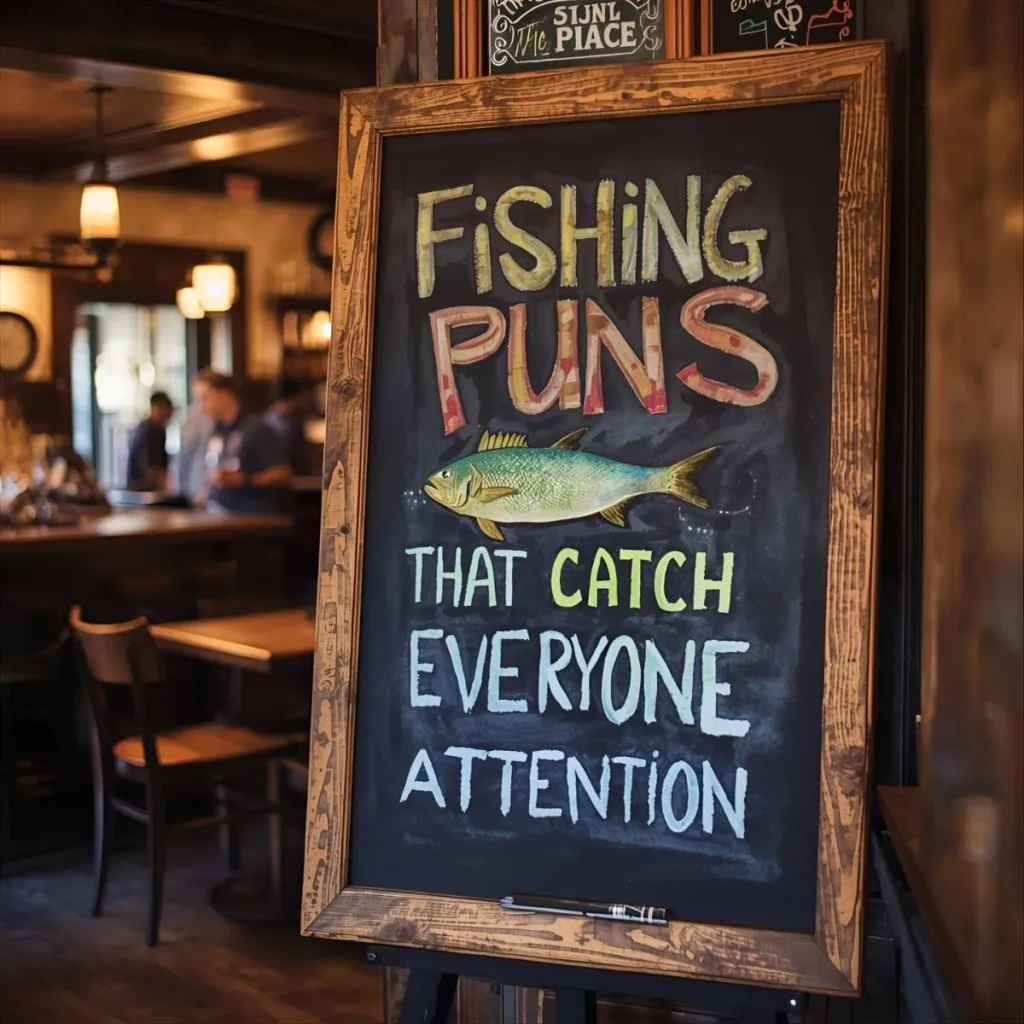 THE
PLACE
FiSHiNG
PUNS
THAT CATCH
EVERYONE
ATTENTiON